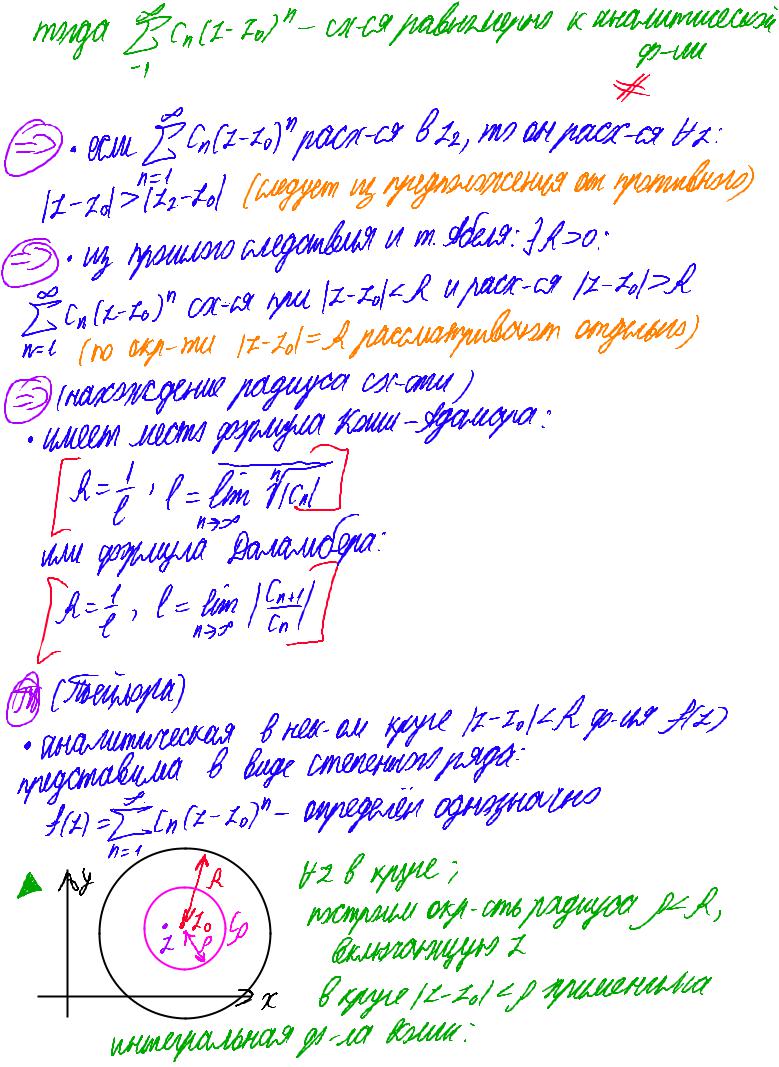 тогда ∑_{-1}^{∞} C_n(z-z_0)^n - сх-ся равномерно к аналитической
ф-ии
⇒ • если ∑_{n=1}^{∞} C_n(z-z_0)^n расх-ся в z_2, то он расх-ся ∀z:
|z-z_0|>|z_2-z_0| (следует из предположения от противного)
⇒ • из прошлого следствия и т. Абеля: ∃R>0:
∑_{n=1}^{∞} C_n(z-z_0)^n сх-ся при |z-z_0|<R и расх-ся |z-z_0|>R
(по окр-ти |z-z_0|=R рассматривают отдельно)
⇒ (нахождение радиуса сх-сти)
• имеет место формула Коши-Адамара:
[R=1/l, l=\overline{lim}_{n→∞} ⁿ√|C_n|]
или формула Даламбера:
[R=1/l, l=lim_{n→∞} |C_{n+1}/C_n|]
Th (Тейлора)
• аналитическая в нек-ом круге |z-z_0|<R ф-ия f(z)
представима в виде степенного ряда:
f(z)=∑_{n=1}^{∞} C_n(z-z_0)^n - определён однозначно
y R z z_0 ρ C_ρ x
∀z в круге;
построим окр-сть радиуса ρ<R,
включающую z
в круге |z-z_0|<ρ применима
интегральная ф-ла Коши: